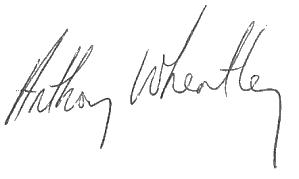 Anthony Wheatley